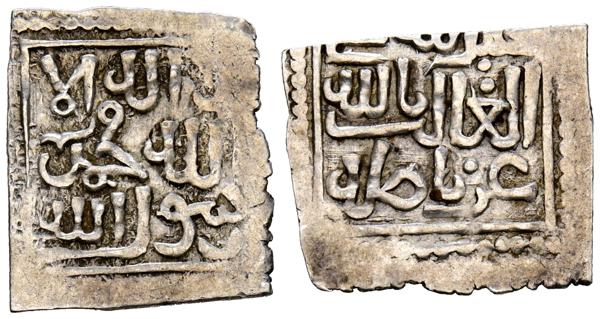 لا اله الا
الله محمد
رسول الله
الله
الغالب بالله
غرناطة